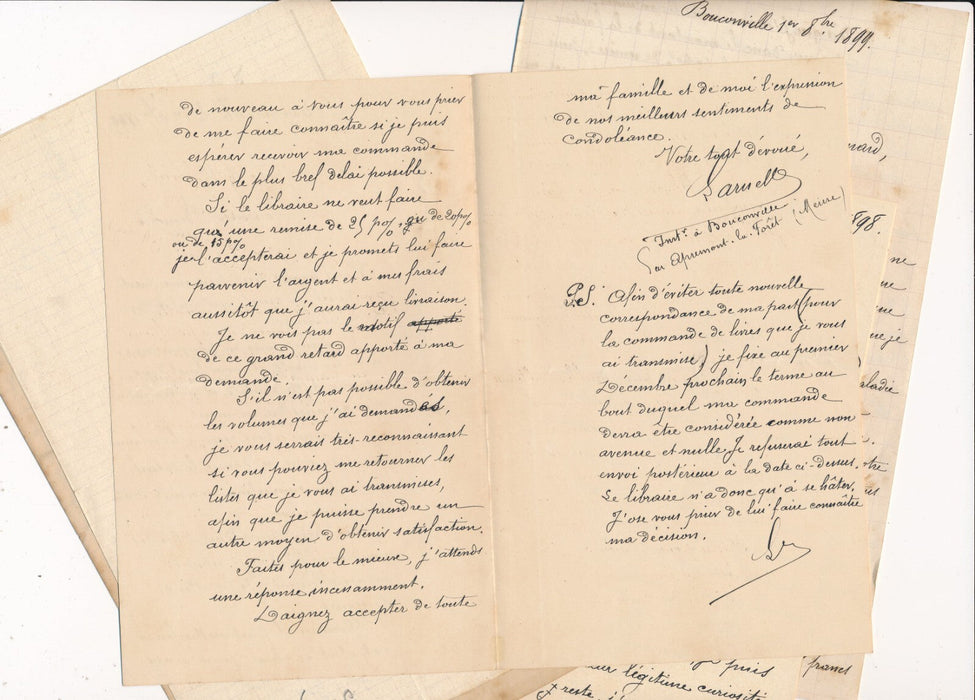 de nouveau à vous pour vous prier
de me faire connaître si je puis
espérer recevoir ma commande
dans le plus bref délai possible.
Si le libraire ne veut faire
qu'une remise de 25 p%, qu de 20 p%
ou de 15 p%
je l'accepterai et je promets lui faire
parvenir l'argent et à mes frais
aussitôt que j'aurai reçu livraison.
Je ne vois pas le motif apporté
de ce grand retard apporté à ma
demande.
S'il n'est pas possible d'obtenir
les volumes que j'ai demandés,
je vous serrais très-reconnaissant
si vous pouviez me retourner les
listes que je vous ai transmises,
afin que je puisse prendre un
autre moyen d'obtenir satisfaction.
Faites pour le mieux, j'attends
une réponse incessamment.
Daignez accepter de toute
ma famille et de moi l'expression
de nos meilleurs sentiments de
condoléance.
Votre tout dévoué,
Inst.r à Bouconville
par Apremont-la-Forêt (Meuse)
P.S. Afin d'éviter toute nouvelle
correspondance de ma part (pour
la commande de livres que je vous
ai transmise) je fixe au premier
Décembre prochain le terme au
bout duquel ma commande
devra être considérée comme non-
avenue et nulle. Je refuserai tout
envoi postérieur à la date ci-dessus.
Le libraire n'a donc qu'à se hâter.
J'ose vous prier de lui faire connaître
ma décision.
Bouconville 1er 8bre 1899.
nard,
898.
ne
ue je
aladie
otre
us
puis
légitime curiosit
reste
francs